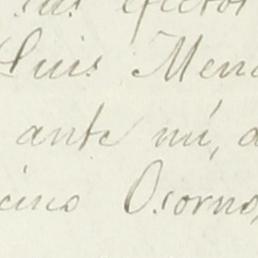 sus efectos
Luis Men
ante mí, a
cino Osorno,